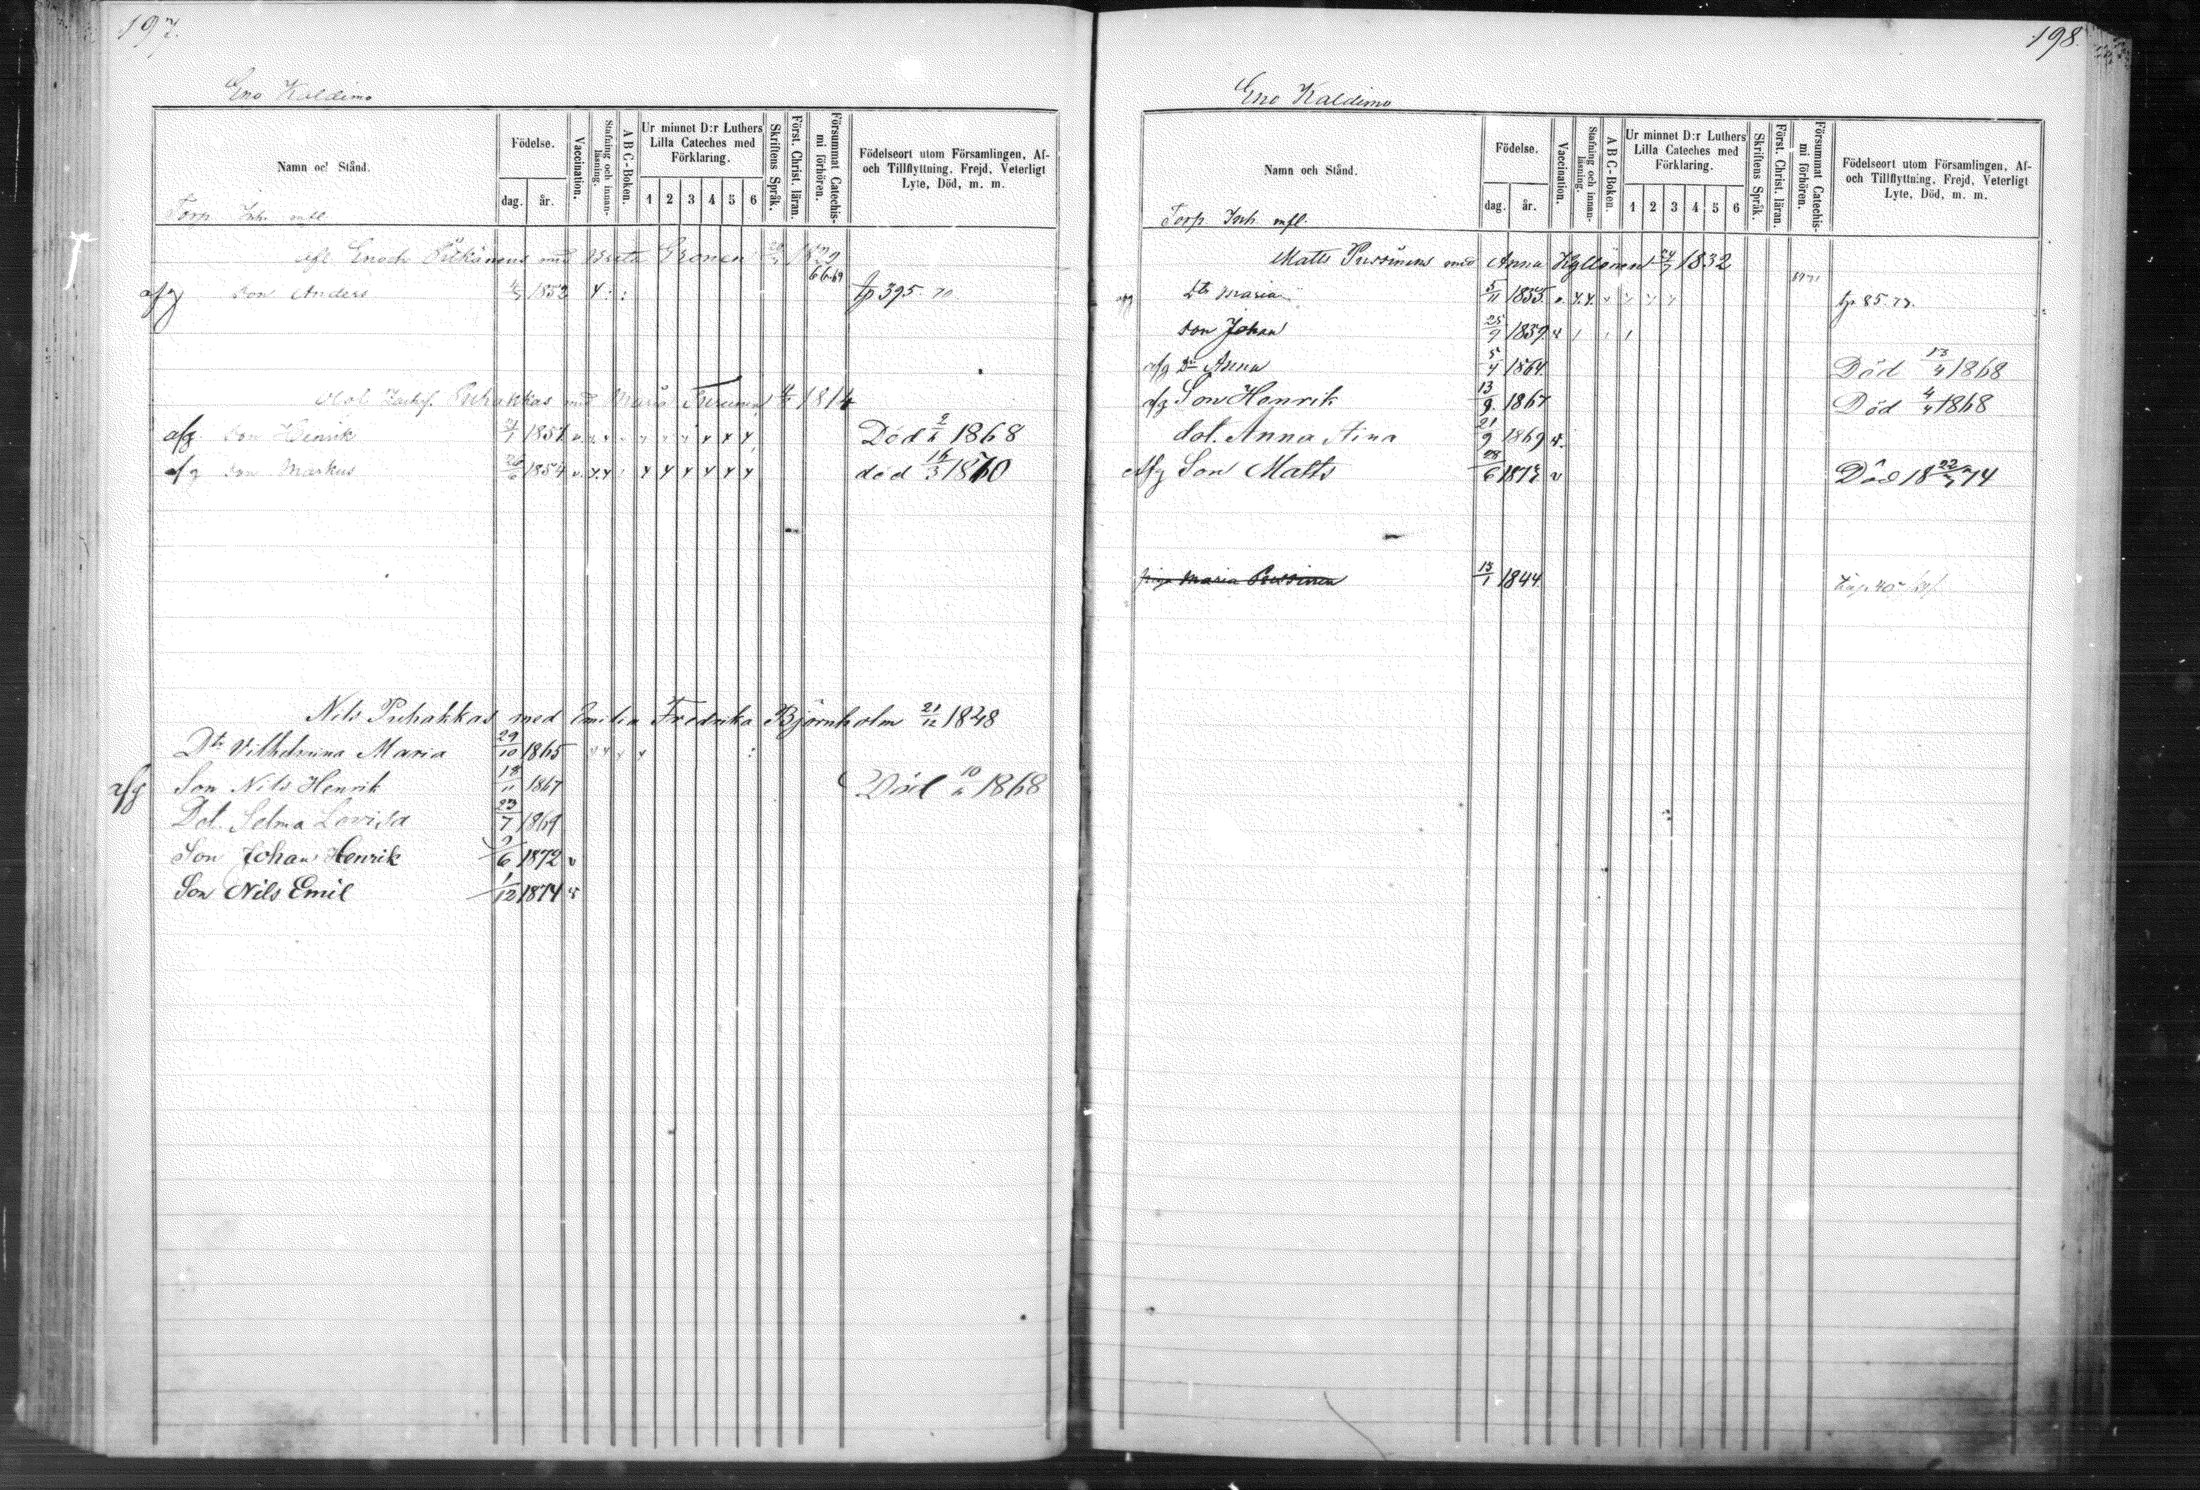 197.
Eno Kaldimo
Namn och Stånd.
Födelse.
dag. år.
Vaccination.
Stafning och innanläsning.
A B C-Boken.
Ur minnet D:r Luthers Lilla Cateches med Förklaring.
1 2 3 4 5 6
Skriftens Språk.
Först. Christ. läran.
Försummat Catechismi förhören.
Födelseort utom Församlingen, Af- och Tillflyttning, Frejd, Veterligt Lyte, Död, m. m.
Torp Inh. mfl.
Enoch med Greta 1829
66-69
afg Son Anders 1852 tp 395.
Olof Puhakkas med Maria Turunen 1814
afg. Son Henrik 1851 Död 1868
afg Son Markus 26/6 1854 död 16/3 1870
Nils Puhakkas med Emilia Fredrika Björnholm 21/12 1828
Dtr Vilhelmina Maria 29/10 1865
afg Son Nils Henrik 18/11 1867 Död 1868
Dot. Selma Lovisa 23/7 1869
Son Johan Henrik 9/6 1872 v
Son Nils Emil 1/12 1874 v
198.
Eno Kaldimo
Namn och Stånd.
Födelse.
dag. år.
Vaccination.
Stafning och innanläsning.
A B C-Boken.
Ur minnet D:r Luthers Lilla Cateches med Förklaring.
1 2 3 4 5 6
Skriftens Språk.
Först. Christ. läran.
Försummat Catechismi förhören.
Födelseort utom Församlingen, Af- och Tillflyttning, Frejd, Veterligt Lyte, Död, m. m.
Torp Inh. mfl.
Matts Pussinens med Anna Kyllönen 1832
afg Dtr Maria 5/11 1855 tp 85.
Son Johan 25/9 1859
afg Dr Anna 5/4 1864 Död 13/4 1868
afg Son Henrik 13/9 1867 Död 4/4 1868
dot. Anna Aina 21/9 1869
Afg Son Matts 28/6 1872 v Död 18 22/7 74
piga Maria Pussinen 13/1 1844